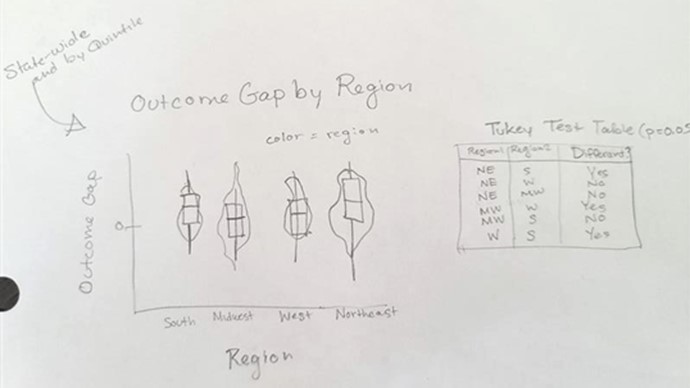 State-wide
and by Quintile
Outcome Gap by Region
color = region
Outcome Gap
0
South Midwest West Northeast
Region
Tukey Test Table (p=0.05
Region1 Region2 Different?
NE S Yes
NE W No
NE MW No
MW W Yes
MW S No
W S Yes